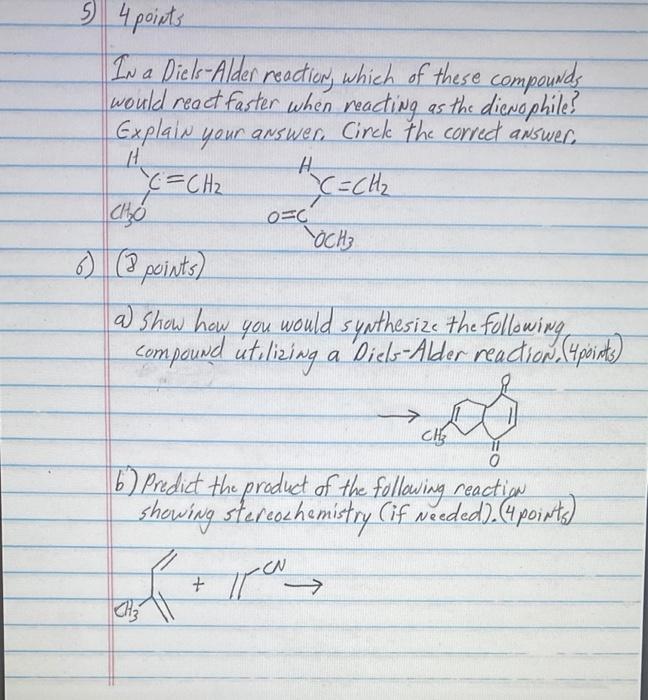 5) 4 points
In a Diels-Alder reaction, which of these compounds
would react faster when reacting as the dienophile?
Explain your answer. Circle the correct answer.
H H
C=CH2 C=CH2
CH3O O=C
OCH3
6) (8 points)
a) Show how you would synthesize the following
compound utilizing a Diels-Alder reaction. (4points)
→
O
CH3
O
b) Predict the product of the following reaction
showing stereochemistry (if needed). (4 points)
CN
+ →
CH3